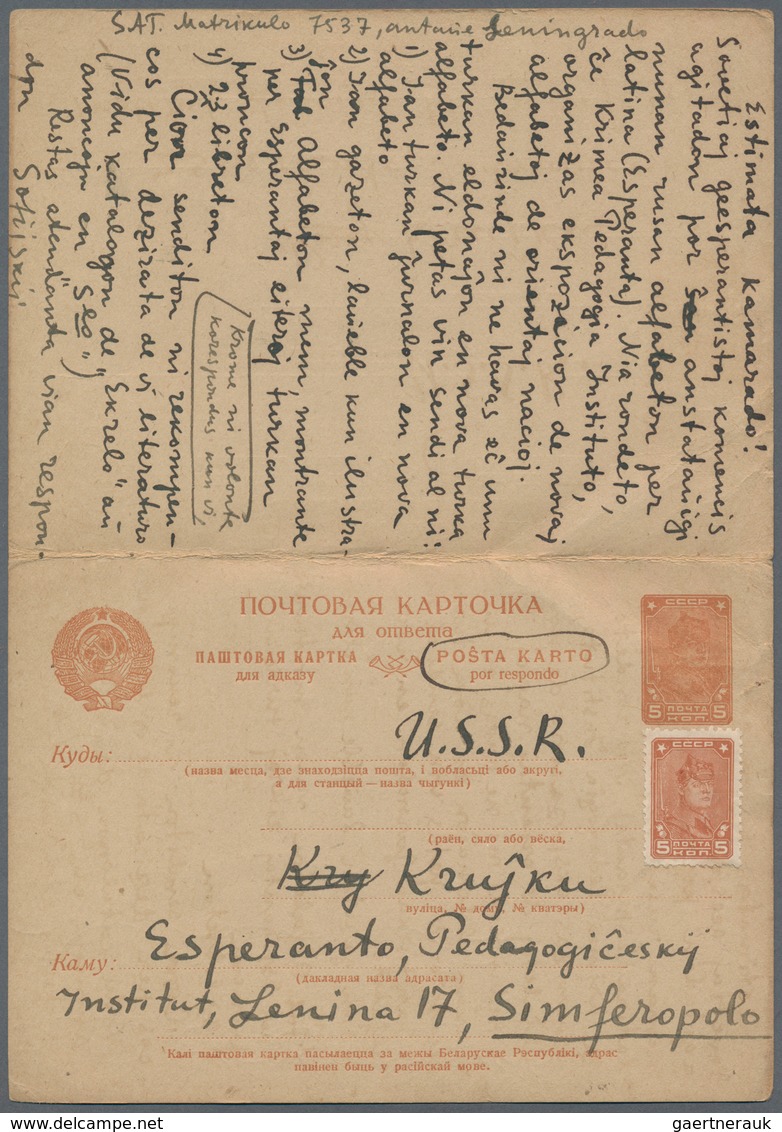 S.A.T. Matrikulo 7537, antaŭe Leningrado
Estimata kamarado!
Sovetiaj geesperantistoj komencis
agitadon por anstataŭigi
nunan rusan alfabeton per
latina (Esperanta). Nia rondeto,
ĉe Krimea Pedagogia Instituto,
organizas ekspozicion de novaj
alfabetoj de orientaj nacioj.
Bedaŭrinde ni ne havas eĉ unu
turkan eldonaĵon en nova turka
alfabeto. Ni petas vin sendi al ni:
1) Ian turkan ĵurnalon en nova
alfabeto
2) Ian gazeton, laŭeble kun ilustra-
ĵoj
3) Alfabeton mem, montrante
per Esperantaj literoj turkan
prononcon
4) 2-3 libretoon
Krome ni volonte
korespondus kun vi,
Cion senditon ni rekompen-
cos per dezirata de vi literaturo
(Vidu katalogon de "Ekrelo" aŭ
anoncojn en "Seo")
Restas atendanta vian respon-
don
ПОЧТОВАЯ КАРТОЧКА
для ответа
ПАШТОВАЯ КАРТКА
для адказу
POŜTA KARTO
por respondo
СССР
5 ПОЧТА КОП. 5
СССР
5 ПОЧТА КОП. 5
Куды: U.S.S.R.
(назва месца, дзе знаходзіцца пошта, і вобласьці або акругі,
а для станцый — назва чыгункі)
(раён, сяло або вёска,
Kruĵku
вуліца, № дому, № кватэры)
Esperanto, Pedagogiĉeskij
Каму:
(дакладная назва адрасата)
Institut, Lenina 17, Simferopolo
Калі паштовая картка пасылаецца за межы Беларускае Рэспублікі, адрас
павінен быць у расійскай мове.
gaertnerauk